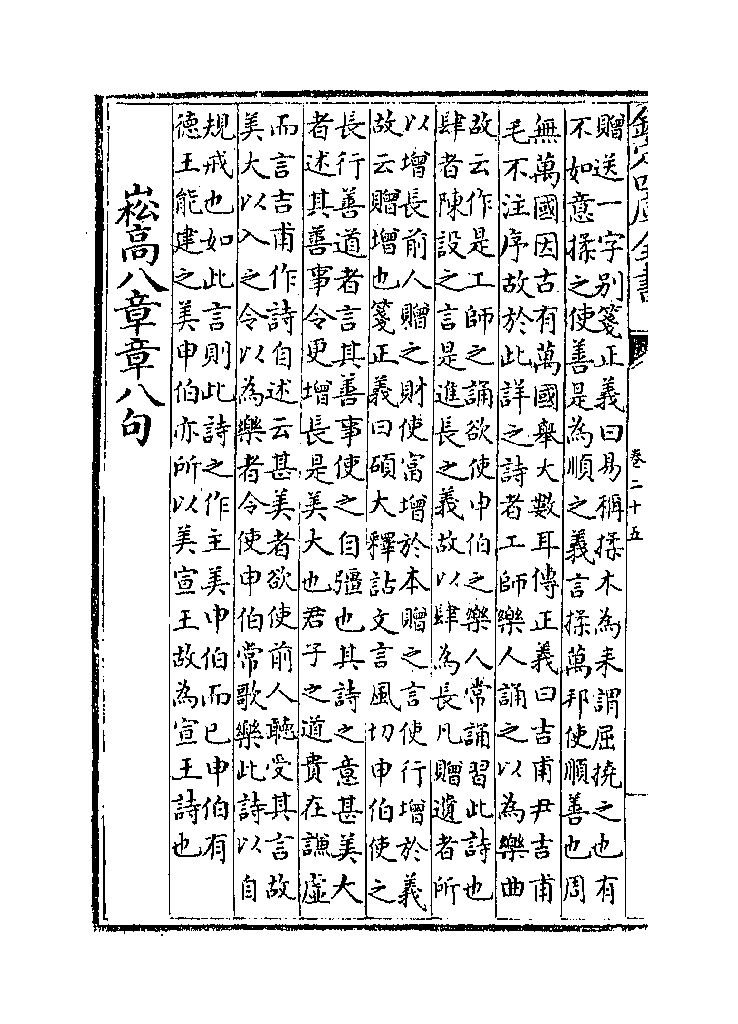 欽定四庫全書
卷二十五
贈送一字别箋正義曰易稱揉木為耒謂屈撓之也有
不如意揉之使善是為順之義言揉萬邦使順善也周
無萬國因古有萬國舉大數耳傳正義曰吉甫尹吉甫
毛不注序故於此詳之詩者工師樂人誦之以為樂曲
故云作是工師之誦欲使申伯之樂人常誦習此詩也
肆者陳設之言是進長之義故以肆為長凡贈遺者所
以增長前人贈之財使富增於本贈之言使行增於義
故云贈增也箋正義曰碩大釋詁文言風切申伯使之
長行善道者言其善事使之自彊也其詩之意甚美大
者述其善事令更增長是美大也君子之道貴在謙虛
而言吉甫作詩自述云甚美者欲使前人聽受其言故
美大以入之令以為樂者令使申伯常歌樂此詩以自
規戒也如此言則此詩之作主美申伯而已申伯有
德王能建之美申伯亦所以美宣王故為宣王詩也
崧高八章章八句